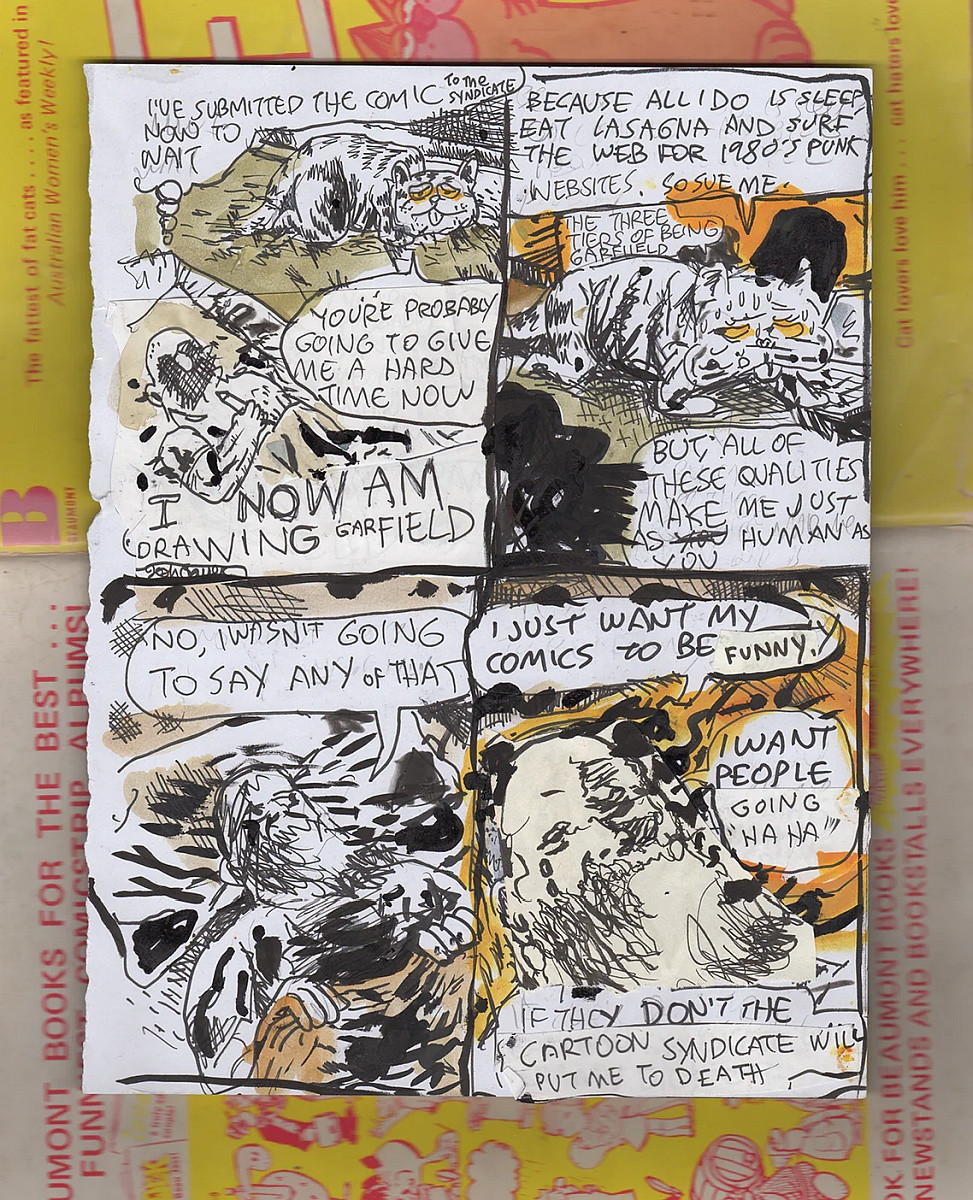 The fattest of fat cats.... as featured in
Australian Women's Weekly!
B
BEAUMONT
I'VE SUBMITTED THE COMIC TO THE
SYNDICATE
NOW TO
WAIT
YOU'RE PROBABLY
GOING TO GIVE
ME A HARD
TIME NOW
I NOW AM
DRAWING GARFIELD
BECAUSE ALL I DO IS SLEEP
EAT LASAGNA AND SURF
THE WEB FOR 1980'S PUNK
WEBSITES. SO SUE ME.
THE THREE
TIERS OF BEING
GARFIELD
BUT, ALL OF
THESE QUALITIES
MAKE ME JUST
AS HUMAN AS
YOU
NO, I WASN'T GOING
TO SAY ANY OF THAT
I JUST WANT MY
COMICS TO BE FUNNY.
I WANT
PEOPLE
GOING
"HA HA"
IF THEY DON'T THE
CARTOON SYNDICATE WILL
PUT ME TO DEATH
Cat lovers love him.... cat haters love
UMONT BOOKS FOR THE BEST....
FUNN COMICSTRIP ALBUMS!
K FOR BEAUMONT BOOKS
NEWSTANDS AND BOOKSTALLS EVERYWHERE!